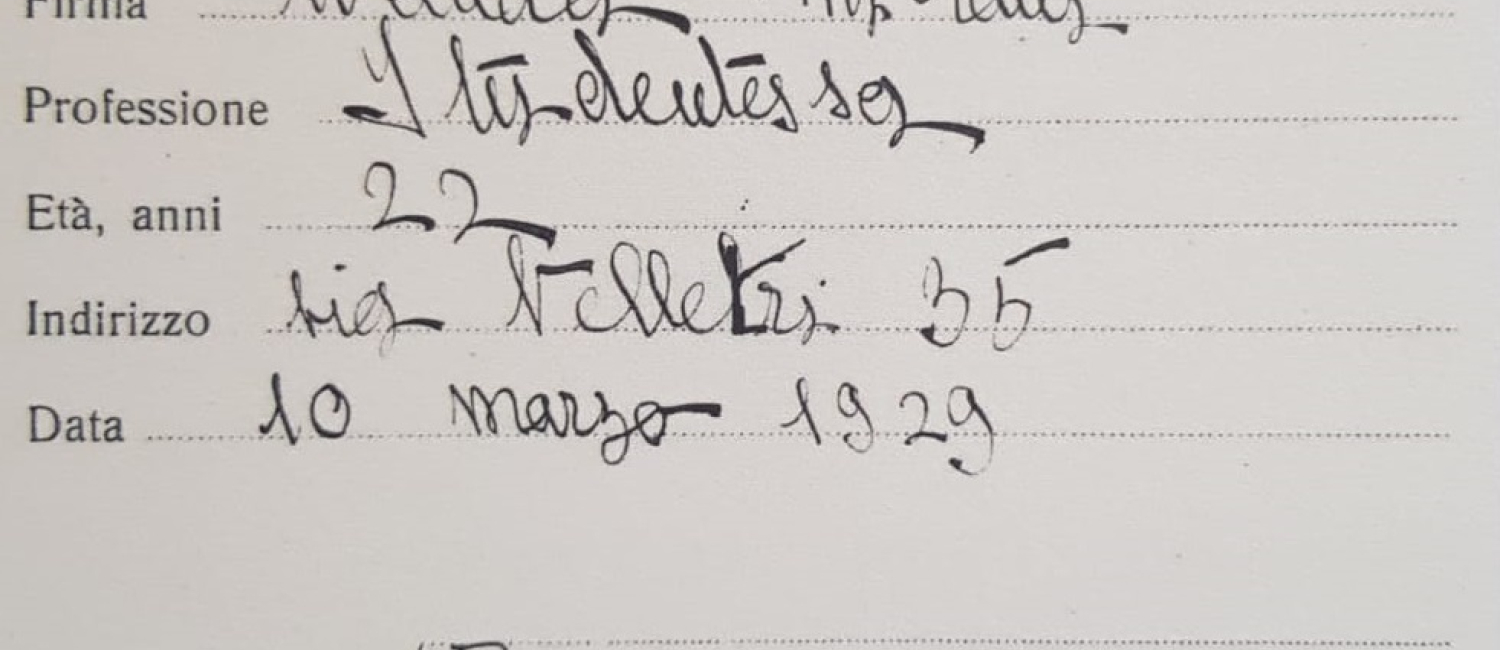 Firma
Professione Studentessa
Età, anni 22
Indirizzo via Velletri 35
Data 10 marzo 1929